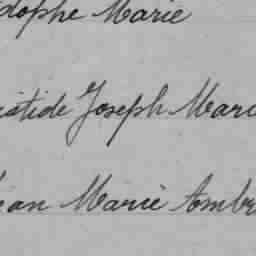 dophe Marie
istide Joseph Mari
ean Marie Ambr